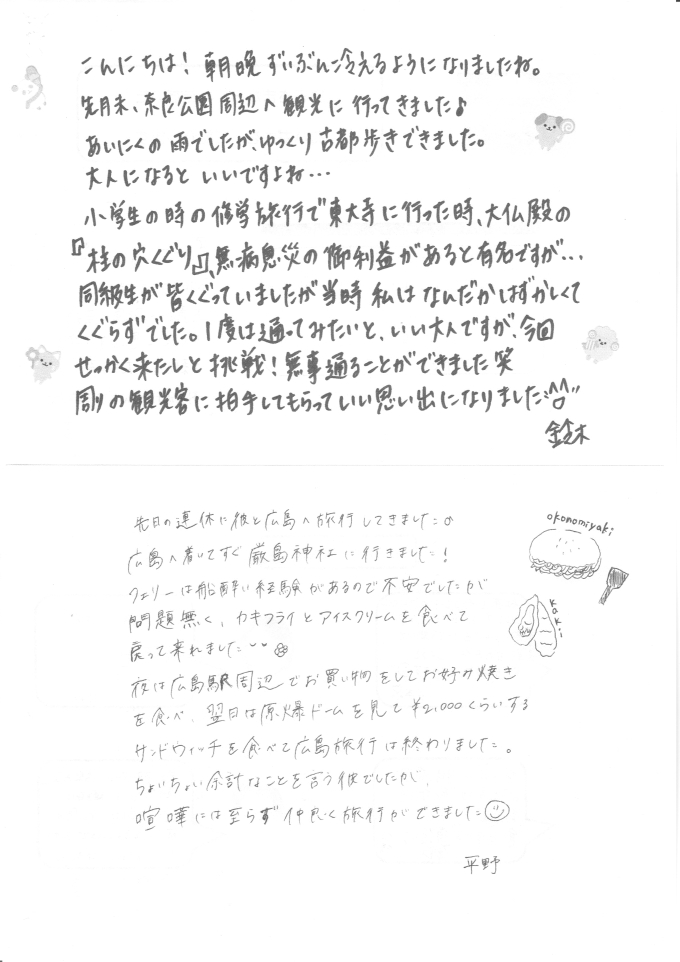 こんにちは！ 朝晩ずいぶん冷えるようになりましたね。
先月末、奈良公園周辺へ観光に行ってきました♪
あいにくの雨でしたが、ゆっくり古都歩きできました。
大人になるといいですよね…
小学生の時の修学旅行で東大寺に行った時、大仏殿の
『柱の穴くぐり』、無病息災の御利益があると有名ですが…
同級生が皆くぐっていましたが当時私はなんだかはずかしくて
くぐらずでした。1度は通ってみたいと、いい大人ですが、今回
せっかく来たしと挑戦！無事通ることができました笑
周りの観光客に拍手してもらっていい思い出になりました
鈴木
先日の連休に彼と広島へ旅行してきました♪
広島へ着いてすぐ厳島神社に行きました！
フェリーは船酔い経験があるので不安でしたが
問題無く、カキフライとアイスクリームを食べて
戻って来れました
夜は広島駅周辺でお買い物をしてお好み焼き
を食べ、翌日は原爆ドームを見て¥2,000くらいする
サンドウィッチを食べて広島旅行は終わりました。
ちょいちょい余計なことを言う彼でしたが、
喧嘩には至らず仲良く旅行ができました
平野
okonomiyaki
kakii